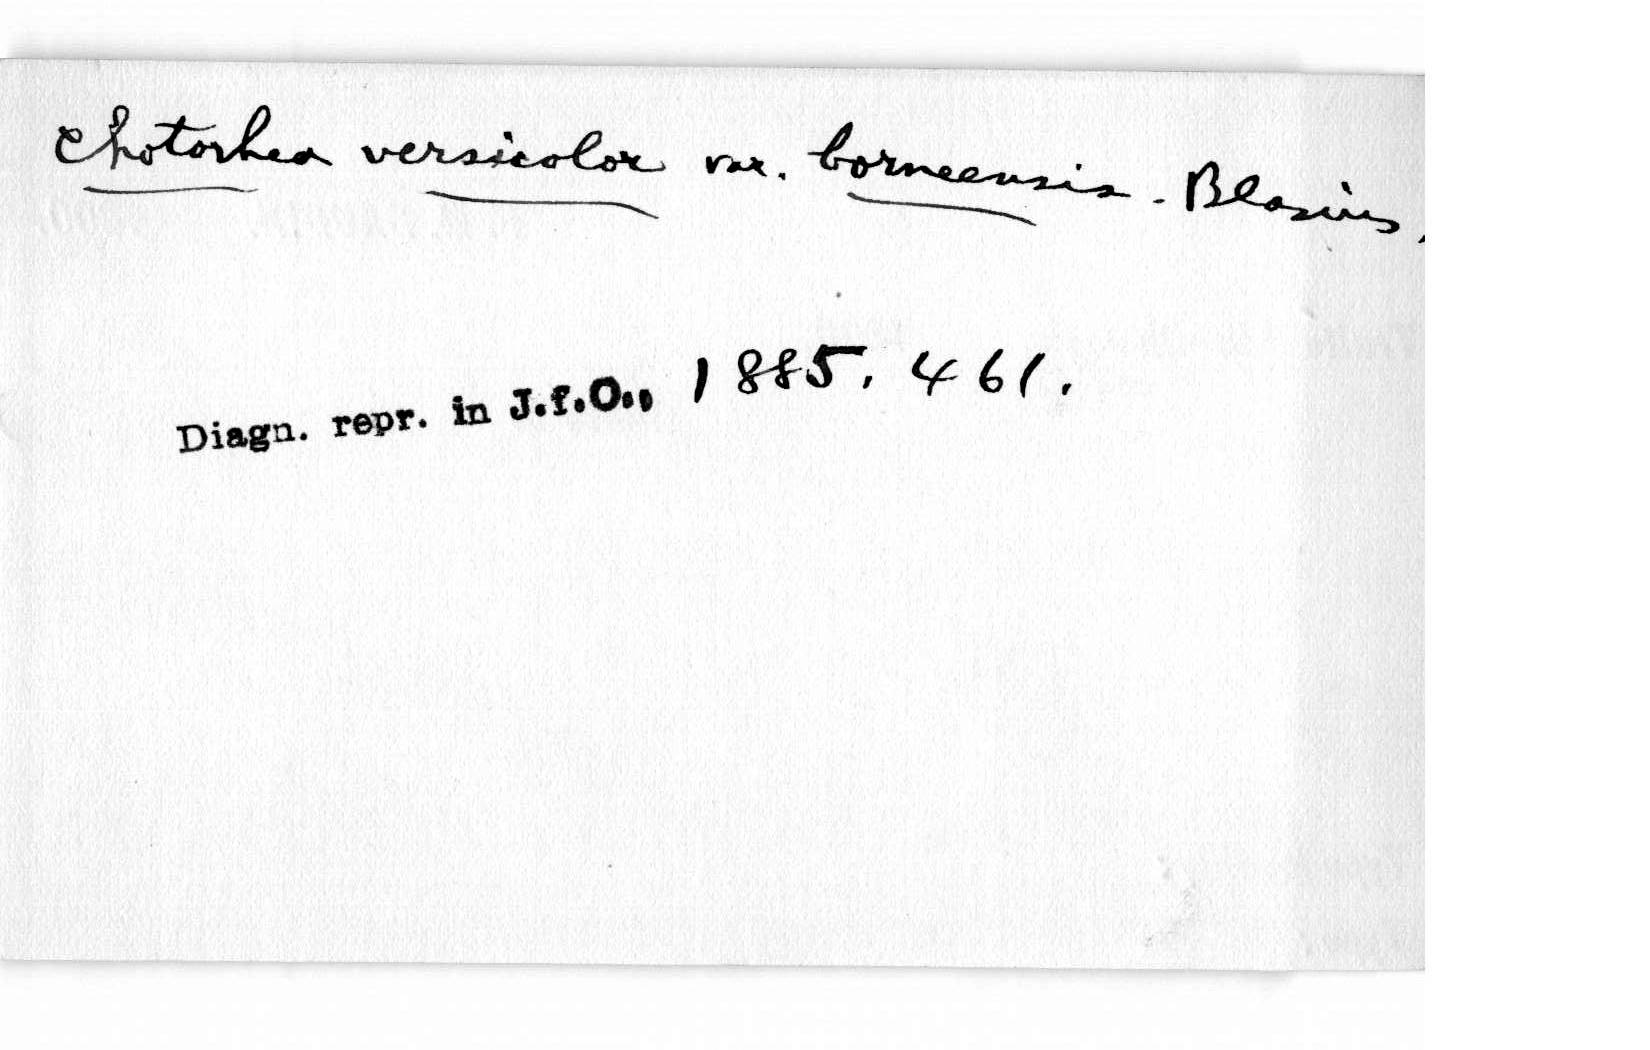 Chotorhea versicolor var. borneensis. Blasius,
Diagn. repr. in J.f.O., 1885, 461.